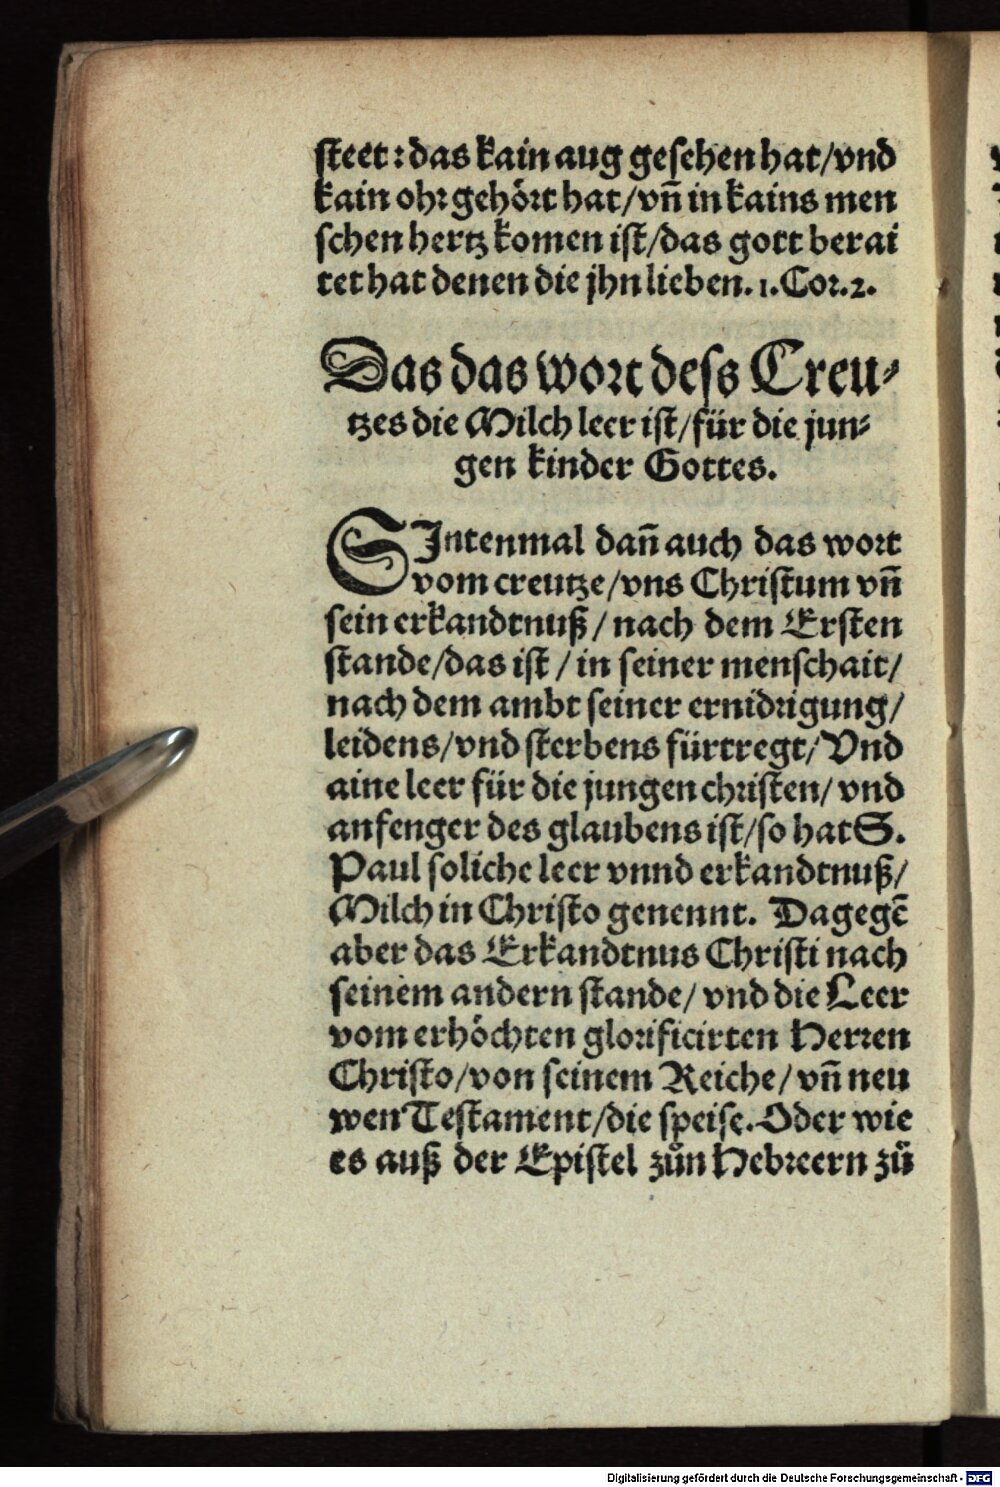 steet: das kain aug gesehen hat/vnd
kain ohr gehört hat/vñ in kains men
schen hertz komen ist/das gott berai
tet hat denen die jhn lieben. 1. Cor. 2.
Das das wort dess Creu-
tzes die Milch leer ist/für die jun-
gen kinder Gottes.
SIntenmal dañ auch das wort
vom creutze/vns Christum vñ
sein erkandtnuß/nach dem Ersten
stande/das ist/in seiner menschait/
nach dem ambt seiner ernidrigung/
leidens/vnd sterbens fürtregt/Vnd
aine leer für die jungen christen/vnd
anfenger des glaubens ist/so hat S.
Paul soliche leer vnnd erkandtnuß/
Milch in Christo genennt. Dagegē
aber das Erkandtnus Christi nach
seinem andern stande/vnd die Leer
vom erhöchten glorificirten Herren
Christo/von seinem Reiche/vñ neu
wen Testament/die speise. Oder wie
es auß der Epistel zůn Hebreern zů
Digitalisierung gefördert durch die Deutsche Forschungsgemeinschaft - DFG